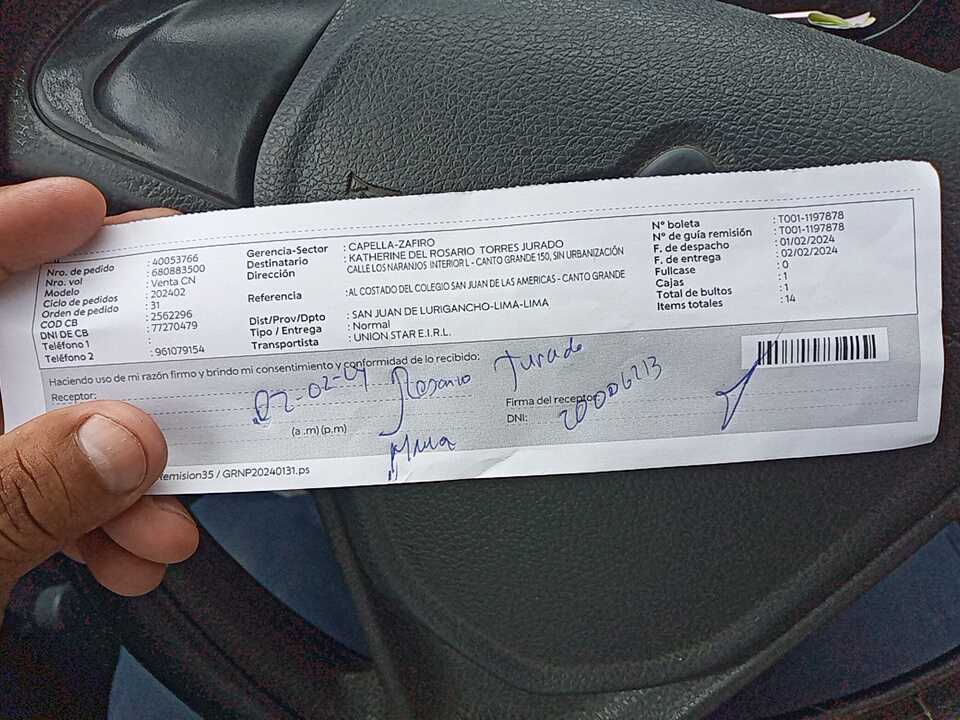 Nro. de pedido : 40053766
Nro. vol : 680883500
Modelo : Venta CN
Ciclo de pedidos : 202402
Orden de pedido : 31
COD CB : 2562296
DNI DE CB : 77270479
Teléfono 1 :
Teléfono 2 : 961079154
Gerencia-Sector : CAPELLA-ZAFIRO
Destinatario : KATHERINE DEL ROSARIO TORRES JURADO
Dirección CALLE LOS NARANJOS INTERIOR L - CANTO GRANDE 150, SIN URBANIZACIÓN
Referencia : AL COSTADO DEL COLEGIO SAN JUAN DE LAS AMERICAS - CANTO GRANDE
Dist/Prov/Dpto : SAN JUAN DE LURIGANCHO-LIMA-LIMA
Tipo / Entrega : Normal
Transportista : UNION STAR E.I.R.L.
N° boleta : T001-1197878
N° de guía remisión : T001-1197878
F. de despacho : 01/02/2024
F. de entrega : 02/02/2024
Fullcase : 0
Cajas : 1
Total de bultos : 1
Items totales : 14
Haciendo uso de mi razón firmo y brindo mi consentimiento y conformidad de lo recibido:
Receptor:
02-02-24 Rosario Jurado
(a .m) (p.m)
Firma del receptor:
DNI: 20006213
Remision35 / GRNP20240131.ps